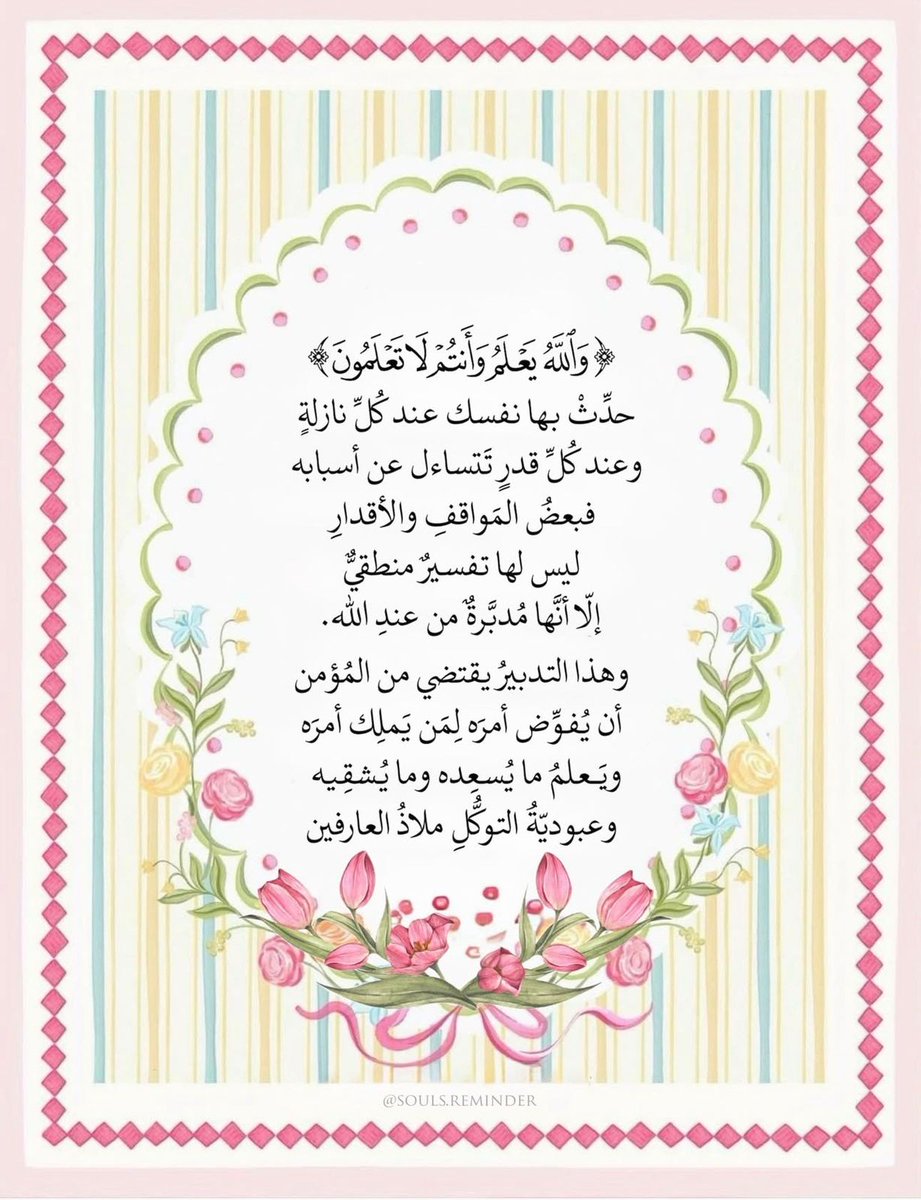 ﴿وَٱللَّهُ يَعۡلَمُ وَأَنتُمۡ لَا تَعۡلَمُونَ﴾
حدِّثْ بها نفسك عند كُلِّ نازلةٍ
وعند كُلِّ قدرٍ تَتساءل عن أسبابه
فبعضُ المَواقفِ والأقدارِ
ليس لها تفسيرٌ منطقيٌّ
إلّا أنَّها مُدبَّرةٌ من عندِ الله.
وهذا التدبيرُ يقتضي من المُؤمن
أن يُفوِّض أمرَه لِمَن يَملِك أمرَه
ويَـعلمُ ما يُسعِده وما يُشقِيه
وعبوديّةُ التوكُّلِ ملاذُ العارفين
@SOULS.REMINDER